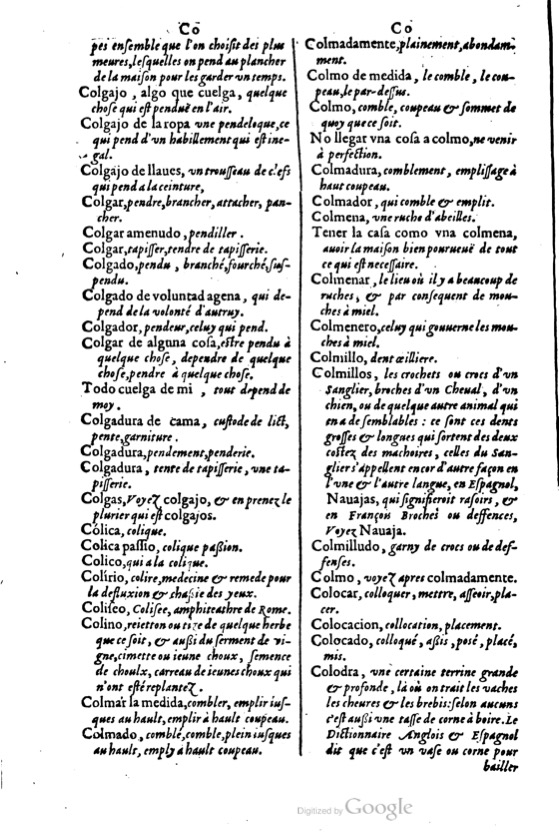 Co
pes ensemble que l'on choisit des plus
meures, lesquelles on pend au plancher
de la maison pour les garder vn temps.
Colgajo, algo que cuelga, quelque
chose qui est penduë en l'air.
Colgajo de la ropa vne pendeloque, ce
qui pend d'un habillement qui est ine-
gal.
Colgajo de llaues, vn trousseau de clefs
qui pend a la ceinture,
Colgar, pendre, brancher, attacher, pan-
cher.
Colgar amenudo, pendiller.
Colgar, tapisser, tendre de tapisserie.
Colgado, pendu, branché, fourché, sus-
pendu.
Colgado de voluntad agena, qui de-
pend de la volonté d'autruy.
Colgador, pendeur, celuy qui pend.
Colgar de alguna cosa, estre pendu à
quelque chose, dependre de quelque
chose, pendre à quelque chose.
Todo cuelga de mi, tout depend de
moy.
Colgadura de cama, custode de lict,
pente, garniture.
Colgadura, pendement, penderie.
Colgadura, tente de tapisserie, vne ta-
pisserie.
Colgas, Voyez colgajo, & en prenez le
plurier qui est colgajos.
Cólica, colique.
Colica passio, colique passion.
Colico, qui a la colique.
Colirio, colire, medecine & remede pour
la defluxion & chassie des yeux.
Coliseo, Colisee, amphiteathre de Rome.
Colino, reietton ou tige de quelque herbe
que ce soit, & aussi du serment de vi-
gne, cimette ou ieune choux, semence
de choulx, carreau de ieunes choux qui
n'ont esté replantez.
Colmar la medida, combler, emplir ius-
ques au hault, emplir à hault coupeau.
Colmado, comblé, comble, plein iusques
au hault, emply à hault coupeau.
Co
Colmadamente, plainement, abondam-
ment.
Colmo de medida, le comble, le cou-
peau, le par-dessus.
Colmo, comble, coupeau & sommet de
quoy que ce soit.
No llegar vna cosa a colmo, ne venir
à perfection.
Colmadura, comblement, emplissage à
haut coupeau.
Colmador, qui comble & emplit.
Colmena, vne ruche d'abeilles.
Tener la casa como vna colmena,
auoir la maison bien pourueuë de tout
ce qui est necessaire.
Colmenar, le lieu où il y a beaucoup de
ruches, & par consequent de mou-
ches à miel.
Colmenero, celuy qui gouuerne les mou-
ches à miel.
Colmillo, dent œilliere.
Colmillos, les crochets ou crocs d'vn
Sanglier, broches d'vn Cheual, d'vn
chien, ou de quelque autre animal qui
en a de semblables : ce sont ces dents
grosses & longues qui sortent des deux
costez des machoires, celles du San-
glier s'appellent encor d'autre façon en
l'vne & l'autre langue, en Espagnol,
Nauajas, qui signifieroit rasoirs, &
en François Broches ou deffences,
Voyez Nauaja.
Colmilludo, garny de crocs ou de def-
fenses.
Colmo, voyez apres colmadamente.
Colocar, colloquer, mettre, asseoir, pla-
cer.
Colocacion, collocation, placement.
Colocado, colloqué, assis, posé, placé,
mis.
Colodra, vne certaine terrine grande
& profonde, là où on trait les vaches
les cheures & les brebis: selon aucuns
c'est aussi vne tasse de corne à boire. Le
Dictionnaire Anglois & Espagnol
dit que c'est vn vase ou corne pour
bailler
Digitized by Google